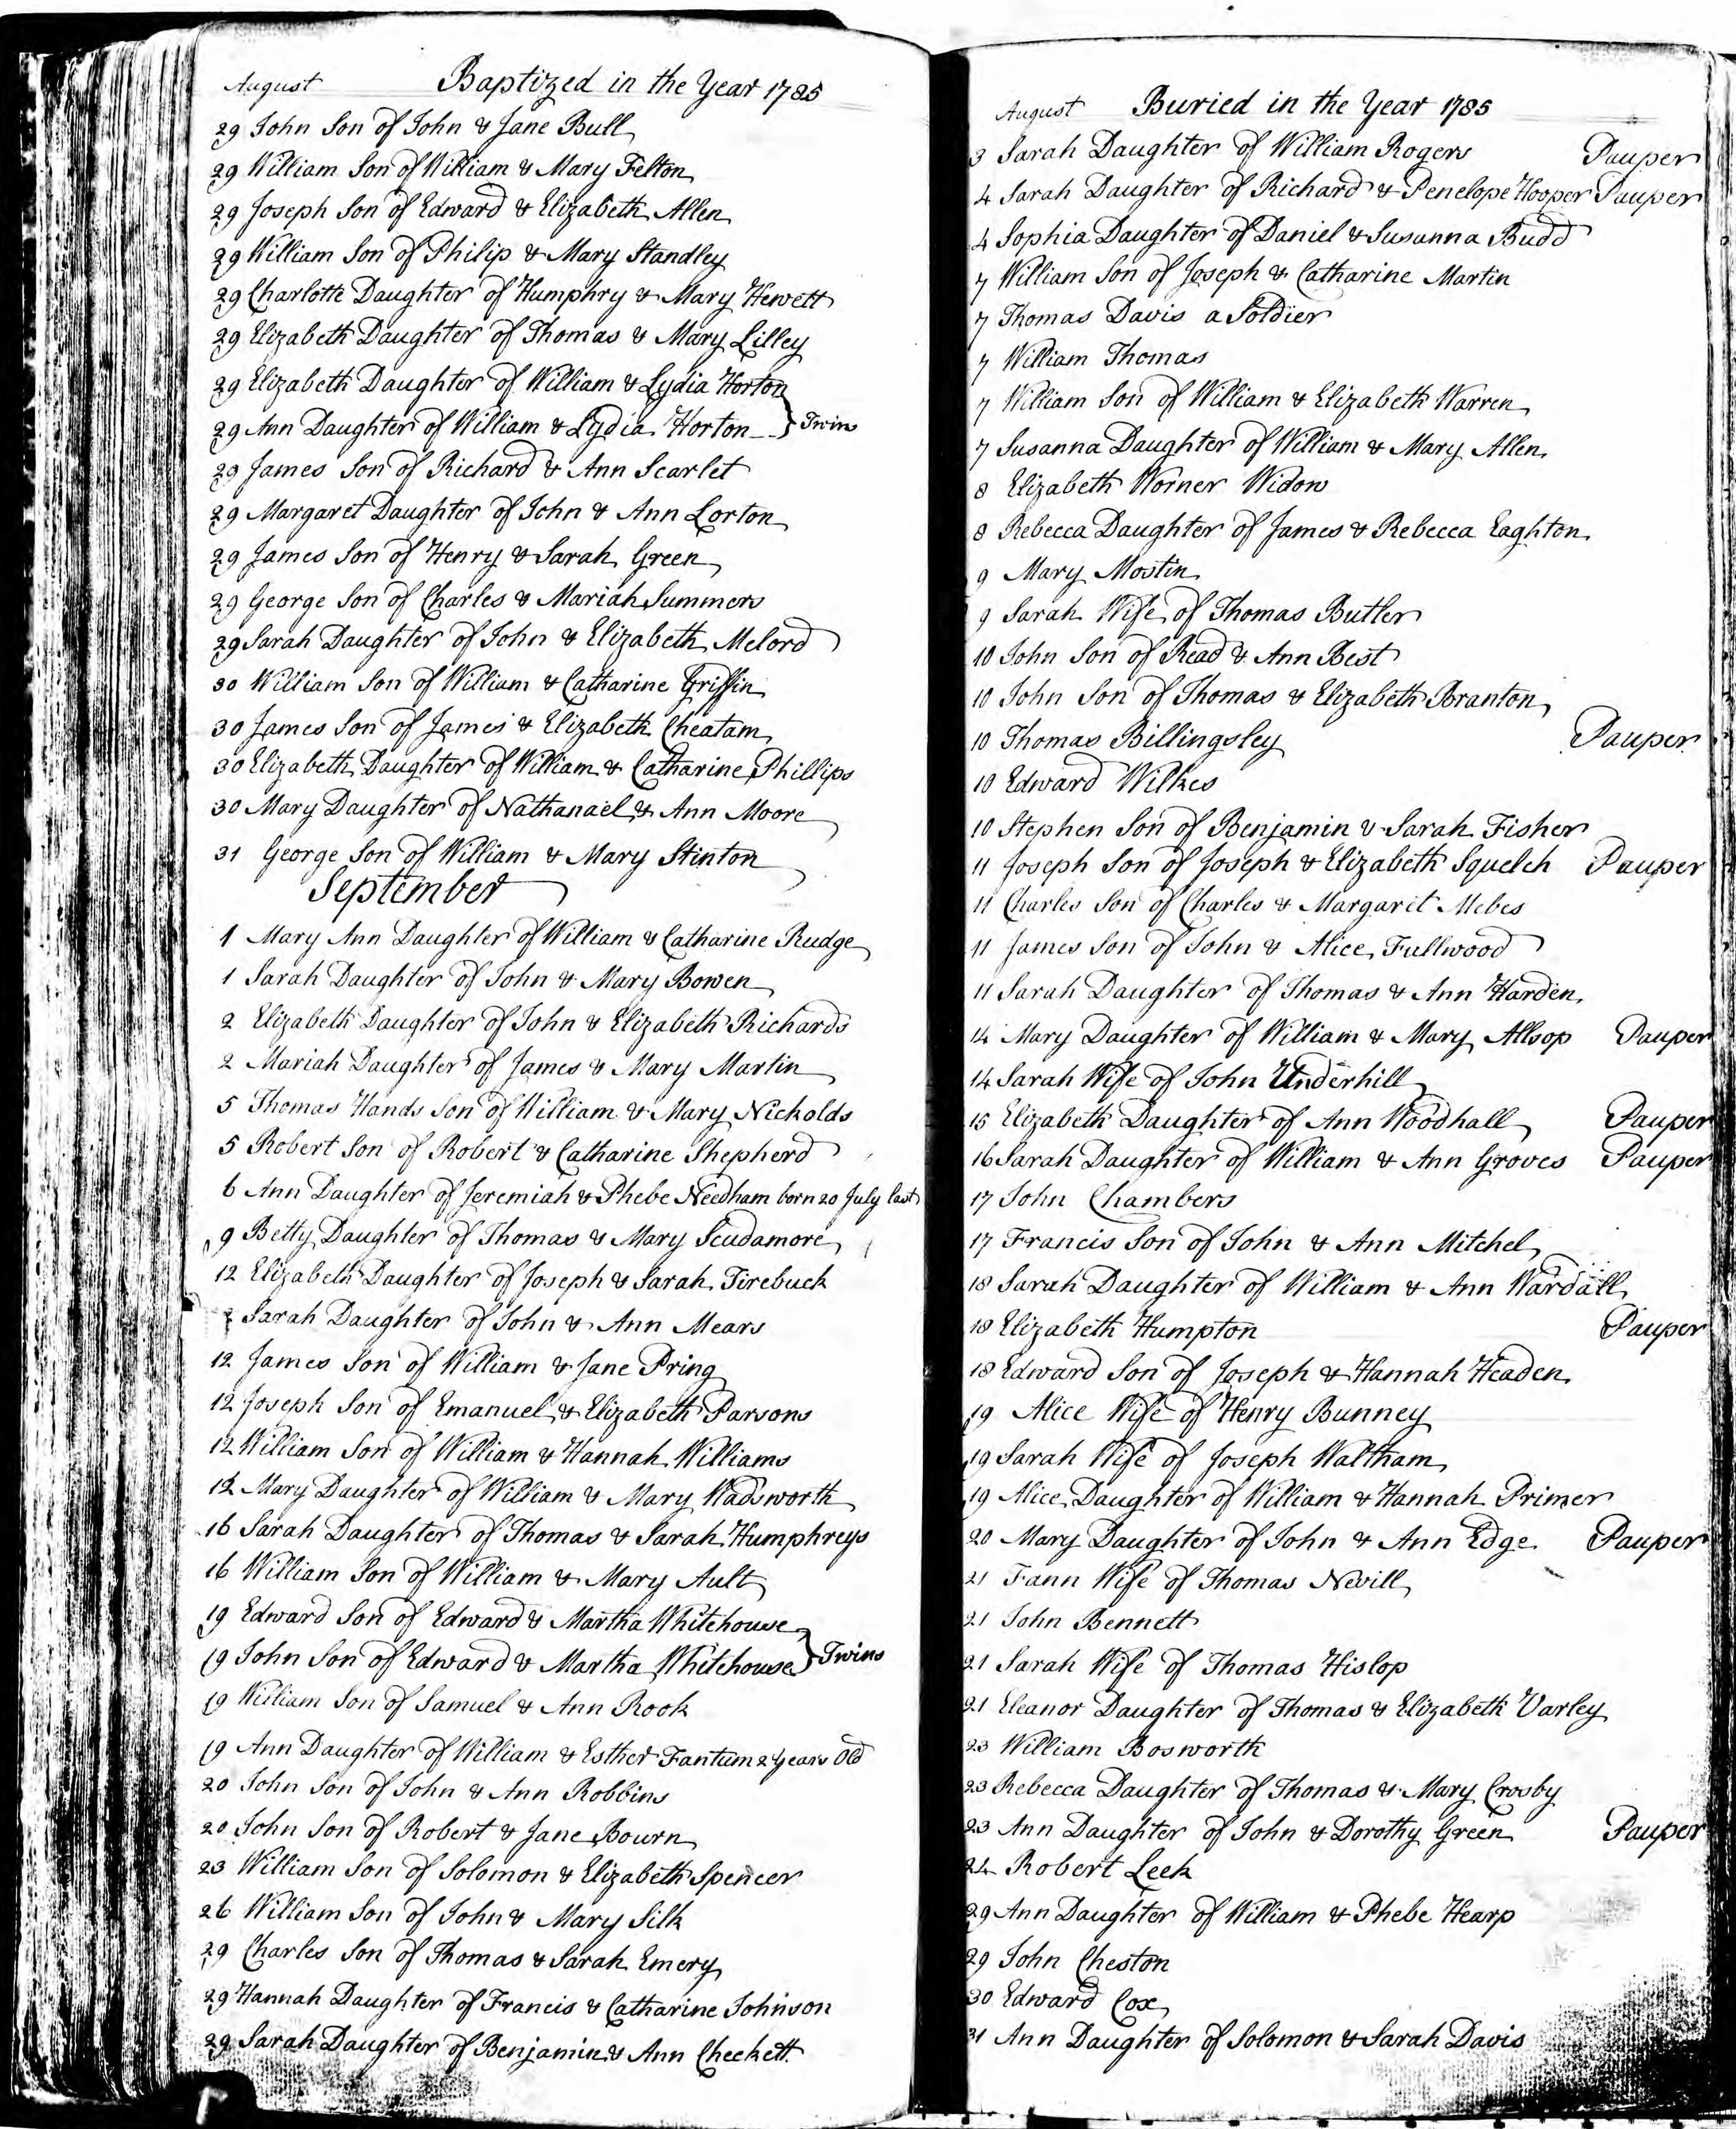 August Baptized in the Year 1785
29 John Son of John & Jane Bull
29 William Son of William & Mary Felton
29 Joseph Son of Edward & Elizabeth Allen
29 William Son of Philip & Mary Standley
29 Charlotte Daughter of Humphry & Mary Hewett
29 Elizabeth Daughter of Thomas & Mary Lilley
29 Elizabeth Daughter of William & Lydia Horton
29 Ann Daughter of William & Lydia Horton Twins
29 James Son of Richard & Ann Scarlet
29 Margaret Daughter of John & Ann Lorton
29 James Son of Henry & Sarah Green
29 George Son of Charles & Mariah Summers
29 Sarah Daughter of John & Elizabeth Melord
30 William Son of William & Catharine Griffin
30 James Son of James & Elizabeth Cheatam
30 Elizabeth Daughter of William & Catharine Phillips
30 Mary Daughter of Nathanael & Ann Moore
31 George Son of William & Mary Stinton
September
1 Mary Ann Daughter of William & Catharine Rudge
1 Sarah Daughter of John & Mary Bowen
2 Elizabeth Daughter of John & Elizabeth Richards
2 Mariah Daughter of James & Mary Martin
5 Thomas Hands Son of William & Mary Nicholds
5 Robert Son of Robert & Catharine Shepherd
6 Ann Daughter of Jeremiah & Phebe Needham born 20 July last
9 Betty Daughter of Thomas & Mary Scudamore
12 Elizabeth Daughter of Joseph & Sarah Firebuck
Sarah Daughter of John & Ann Mears
12 James Son of William & Jane Pring
12 Joseph Son of Emanuel & Elizabeth Parsons
12 William Son of William & Hannah Williams
12 Mary Daughter of William & Mary Wadsworth
16 Sarah Daughter of Thomas & Sarah Humphreys
16 William Son of William & Mary Ault
19 Edward Son of Edward & Martha Whitehouse
19 John Son of Edward & Martha Whitehouse Twins
19 William Son of Samuel & Ann Rook
19 Ann Daughter of William & Esther Fantum 2 Years Old
20 John Son of John & Ann Robbins
20 John Son of Robert & Jane Bourn
23 William Son of Solomon & Elizabeth Spencer
26 William Son of John & Mary Silk
29 Charles Son of Thomas & Sarah Emery
29 Hannah Daughter of Francis & Catharine Johnson
29 Sarah Daughter of Benjamin & Ann Checkett
August Buried in the Year 1785
3 Sarah Daughter of William Rogers Pauper
4 Sarah Daughter of Richard & Penelope Hooper Pauper
4 Sophia Daughter of Daniel & Susanna Budd
7 William Son of Joseph & Catharine Martin
7 Thomas Davis a Soldier
7 William Thomas
7 William Son of William & Elizabeth Warren
7 Susanna Daughter of William & Mary Allen
8 Elizabeth Worner Widow
8 Rebecca Daughter of James & Rebecca Eaghton
9 Mary Mostin
9 Sarah Wife of Thomas Butler
10 John Son of Read & Ann Best
10 John Son of Thomas & Elizabeth Branton
10 Thomas Billingsley Pauper
10 Edward Wilkes
10 Stephen Son of Benjamin & Sarah Fisher
11 Joseph Son of Joseph & Elizabeth Squelch Pauper
11 Charles Son of Charles & Margarit Mebes
11 James Son of John & Alice Fullwood
11 Sarah Daughter of Thomas & Ann Harden
14 Mary Daughter of William & Mary Allsop Pauper
14 Sarah Wife of John Underhill
15 Elizabeth Daughter of Ann Woodhall Pauper
16 Sarah Daughter of William & Ann Groves Pauper
17 John Chambers
17 Francis Son of John & Ann Mitchel
18 Sarah Daughter of William & Ann Wardall
18 Elizabeth Humpton Pauper
18 Edward Son of Joseph & Hannah Headen
19 Alice Wife of Henry Bunney
19 Sarah Wife of Joseph Waltham
19 Alice Daughter of William & Hannah Primer
20 Mary Daughter of John & Ann Edge Pauper
21 Fann Wife of Thomas Nevill
21 John Bennett
21 Sarah Wife of Thomas Hislop
21 Eleanor Daughter of Thomas & Elizabeth Varley
23 William Bosworth
23 Rebecca Daughter of Thomas & Mary Crosby
23 Ann Daughter of John & Dorothy Green Pauper
24 Robert Leek
29 Ann Daughter of William & Phebe Hearp
29 John Cheston
30 Edward Cox
31 Ann Daughter of Solomon & Sarah Davis